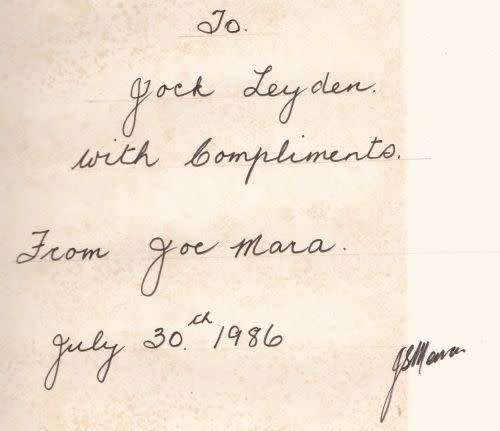 To.
Jock Leyden.
with Compliments.
From Joe Mara.
July 30.th 1986
JSMara